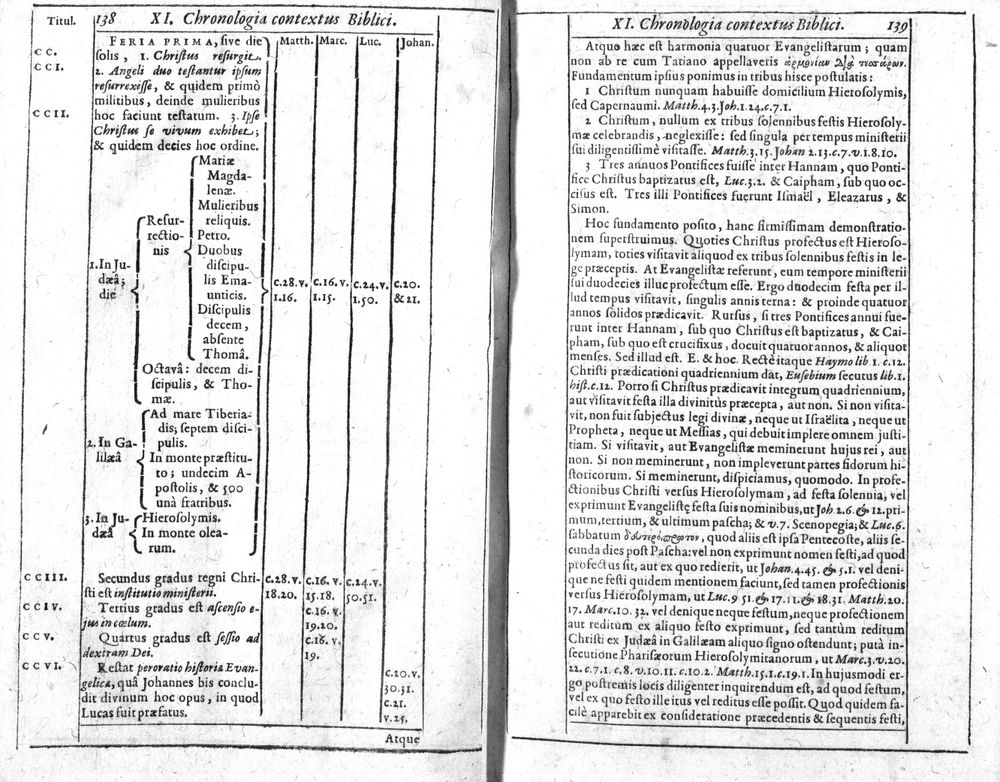 Titul. 138 XI. Chronologia contextus Biblici.
FERIA PRIMA, sive die Matth. Marc. Luc. Johan.
CC. solis, 1. Christus resurgit.
CCI. 2. Angeli duo testantur ipsum
resurrexisse, & quidem primò
militibus, deinde mulieribus
CCII. hoc faciunt testatum. 3. Ipse
Christus se vivum exhibet;
& quidem decies hoc ordine.
Mariæ
Magda-
lenæ.
Mulieribus
Resur- reliquis.
rectio- Petro.
nis Duobus
discipu-
1. In Ju- lis Ema-
dæâ; unticis.
die Discipulis
decem,
absente
Thomâ.
c.28.v. c.16.v. c.24.v. c.20.
1.16. 1.15. 1.50. & 21.
Octavâ: decem di-
scipulis, & Tho-
mæ.
Ad mare Tiberia-
dis; septem disci-
2. In Ga- pulis.
lilæâ In monte præstitu-
to; undecim A-
postolis, & 500
unà fratribus.
3. In Ju- Hierosolymis.
dæâ In monte olea-
rum.
CCIII. Secundus gradus regni Chri- c.28.v. c.16.v. c.24.v.
sti est institutio ministerii. 18.20. 15.18. 50.51.
CCIV. Tertius gradus est ascensio e- c.16.v.
jus in cœlum. 19.20.
CCV. Quartus gradus est sessio ad c.16.v.
dextram Dei. 19.
CCVI. Restat peroratio historiæ Evan- c.20.v.
gelicæ, quâ Johannes bis conclu- 30.31.
dit divinum hoc opus, in quod c.21.
Lucas fuit præfatus. v.25.
Atque
XI. Chronologia contextus Biblici. 139
Atquo hæc est harmonia quatuor Evangelistarum; quam
non ab re cum Tatiano appellaveris ἁρμονίαν διὰ τεσσάρων.
Fundamentum ipsius ponimus in tribus hisce postulatis:
1 Christum nunquam habuisse domicilium Hierosolymis,
sed Capernaumi. Matth.4.3. Joh.1.24.c.7.1.
2 Christum, nullum ex tribus solennibus festis Hierosoly-
mæ celebrandis, neglexisse: sed singula per tempus ministerii
sui diligentissimè visitasse. Matth.3.15. Johan 2.13.c.7.v.1.8.10.
3 Tres annuos Pontifices fuisse inter Hannam, quo Ponti-
fice Christus baptizatus est, Luc.3.2. & Caipham, sub quo oc-
cisus est. Tres illi Pontifices fuerunt Ismaël, Eleazarus, &
Simon.
Hoc fundamento posito, hanc firmissimam demonstratio-
nem superstruimus. Quoties Christus profectus est Hieroso-
lymam, toties visitavit aliquod ex tribus solennibus festis in le-
ge præceptis. At Evangelistæ referunt, eum tempore ministerii
sui duodecies illuc profectum esse. Ergo duodecim festa per il-
lud tempus visitavit, singulis annis terna: & proinde quatuor
annos solidos prædicavit. Rursus, si tres Pontifices annui fue-
runt inter Hannam, sub quo Christus est baptizatus, & Cai-
pham, sub quo est crucifixus, docuit quatuor annos, & aliquot
menses. Sed illud est. E. & hoc. Rectè itaque Haymo lib 1. c.12.
Christi prædicationi quadriennium dat, Eusebium secutus lib.1.
hist.c.12. Porro si Christus prædicavit integrum quadriennium,
aut visitavit festa illa divinitùs præcepta, aut non. Si non visita-
vit, non fuit subjectus legi divinæ, neque ut Israëlita, neque ut
Propheta, neque ut Messias, qui debuit implere omnem justi-
tiam. Si visitavit, aut Evangelistæ meminerunt hujus rei, aut
non. Si non meminerunt, non impleverunt partes fidorum hi-
storicorum. Si meminerunt, dispiciamus, quomodo. In profe-
ctionibus Christi versus Hierosolymam, ad festa solennia, vel
exprimunt Evangelistę festa suis nominibus, ut Joh.2.6. & 12. pri-
mum, tertium, & ultimum pascha; & v.7. Scenopegia; & Luc.6.
sabbatum δευτερόπρωτον, quod aliis est ipsa Pentecoste, aliis se-
cunda dies post Pascha: vel non exprimunt nomen festi, ad quod
profectus sit, aut ex quo redierit, ut Johan.4.45. & 5.1. vel deni-
que ne festi quidem mentionem faciunt, sed tamen profectionis
versus Hierosolymam, ut Luc.9 51. & 17.11. & 18.31. Matth.20.
17. Marc.10. 32. vel denique neque festum, neque profectionem
aut reditum ex aliquo festo exprimunt, sed tantùm reditum
Christi ex Judæâ in Galilæam aliquo signo ostendunt; putà in-
secutione Pharisæorum Hierosolymitanorum, ut Marc.3.v.20.
22.c.7.1. c.8.v.10.11.c.10.2. Matth.15.1.c.19.1. In hujusmodi er-
go postremis locis diligenter inquirendum est, ad quod festum,
vel ex quo festo ille itus vel reditus esse possit. Quod quidem fa-
cilè apparebit ex consideratione præcedentis & sequentis festi,